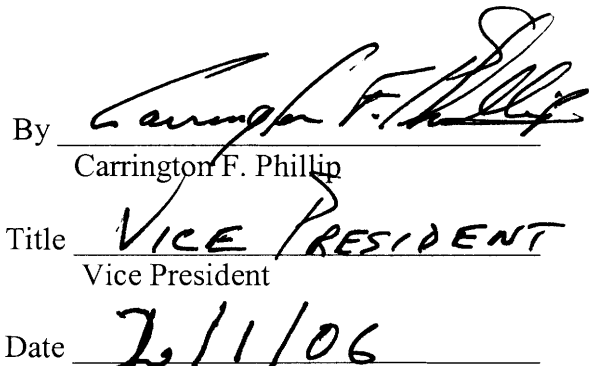 By Carrington F. Phillip
Carrington F. Phillip
Title VICE PRESIDENT
Vice President
Date 2/1/06